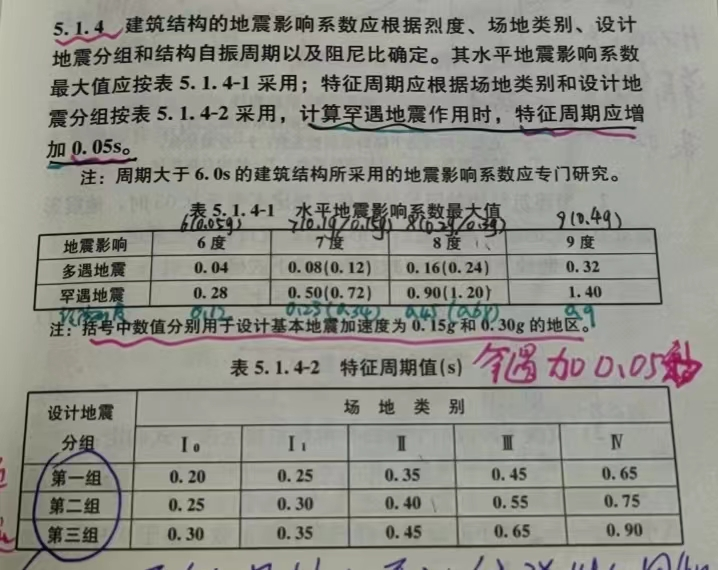 5.1.4 建筑结构的地震影响系数应根据烈度、场地类别、设计
地震分组和结构自振周期以及阻尼比确定。其水平地震影响系数
最大值应按表 5.1.4-1 采用；特征周期应根据场地类别和设计地
震分组按表 5.1.4-2 采用，计算罕遇地震作用时，特征周期应增
加 0.05s。
注：周期大于 6.0s 的建筑结构所采用的地震影响系数应专门研究。
表 5.1.4-1 水平地震影响系数最大值
6(0.05g) 7(0.1g/0.15g) 8(0.2g/0.3g) 9(0.4g)
地震影响 6 度 7 度 8 度 9 度
多遇地震 0.04 0.08(0.12) 0.16(0.24) 0.32
罕遇地震 0.28 0.50(0.72) 0.90(1.20) 1.40
0.12 0.23(0.34) 0.45(0.68) 0.9
注：括号中数值分别用于设计基本地震加速度为 0.15g 和 0.30g 的地区。
表 5.1.4-2 特征周期值(s) 罕遇加0.05秒
设计地震分组 场地类别
Ⅰ₀ Ⅰ₁ Ⅱ Ⅲ Ⅳ
第一组 0.20 0.25 0.35 0.45 0.65
第二组 0.25 0.30 0.40 0.55 0.75
第三组 0.30 0.35 0.45 0.65 0.90